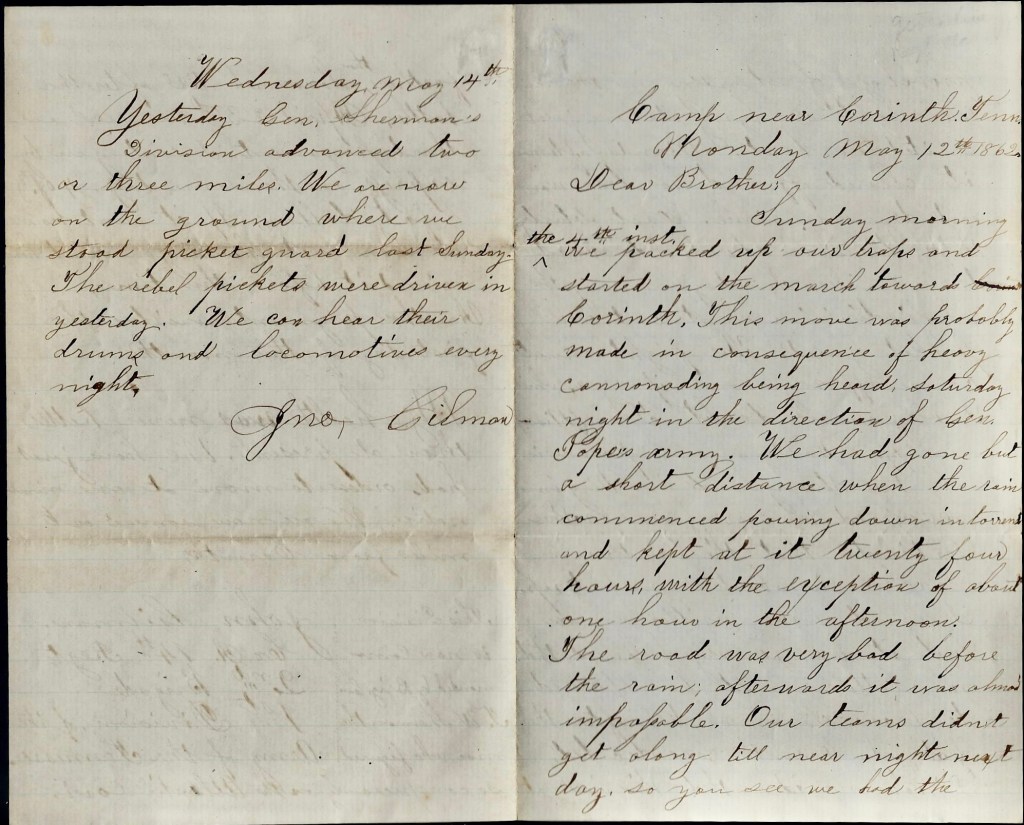 Wednesday, May 14th
Yesterday Gen. Sherman's
Division advanced two
or three miles. We are now
on the ground where we
stood picket guard last Sunday.
The rebel pickets were driven in
yesterday. We can hear their
drums and locomotives every
night,
Jno, Gilman
Camp near Corinth. Tenn.
Monday May 12th 1862.
Dear Brother;
Sunday morning
the 4th inst.
We packed up our traps and
started on the march towards
Corinth. This move was probably
made in consequence of heavy
cannonading being heard, saturday
night in the direction of Gen.
Popes army. We had gone but
a short distance when the rain
commenced pouring down in torrents
and kept at it twenty four
hours, with the exception of about
one hour in the afternoon.
The road was very bad before
the rain; afterwards it was almost
impassable. Our teams didn't
get along till near night next
day. so you see we had the